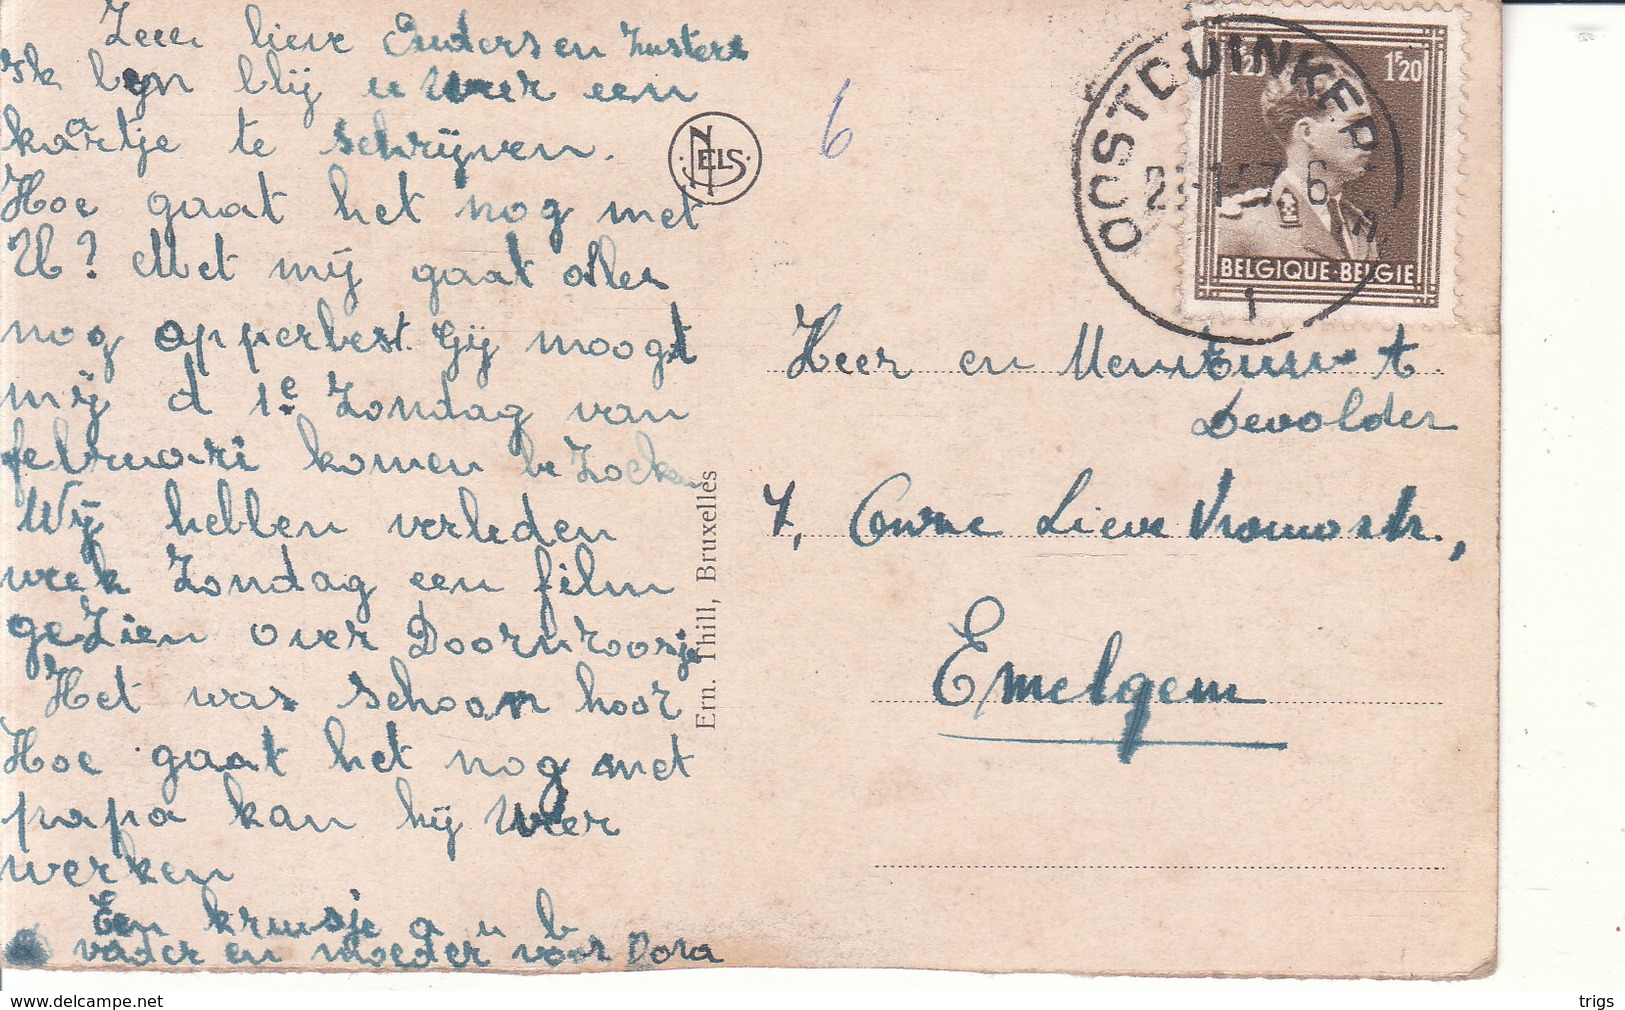 Zeer lieve Ouders en Zusters
ik ben blij u weer een
kaartje te schrijven.
Hoe gaat het nog met
U? Met mij gaat alles
nog opperbest. Gij moogt
mij d 1e Zondag van
februari komen be Zoeken
Wij hebben verleden
week Zondag een film
geZien over Doornroosje
Het was schoon hoor
Hoe gaat het nog met
papa kan hij weer
werken
Een kruisje a u b
vader en moeder voor Dora
NELS
Ern. Thill, Bruxelles
6
OOSTDUINKERKE
1
1F20
BELGIQUE-BELGIE
Heer en Mevrouw
Devolder
7, Onze Lieve Vrouwstr.,
Emelgem
www.delcampe.net
trigs